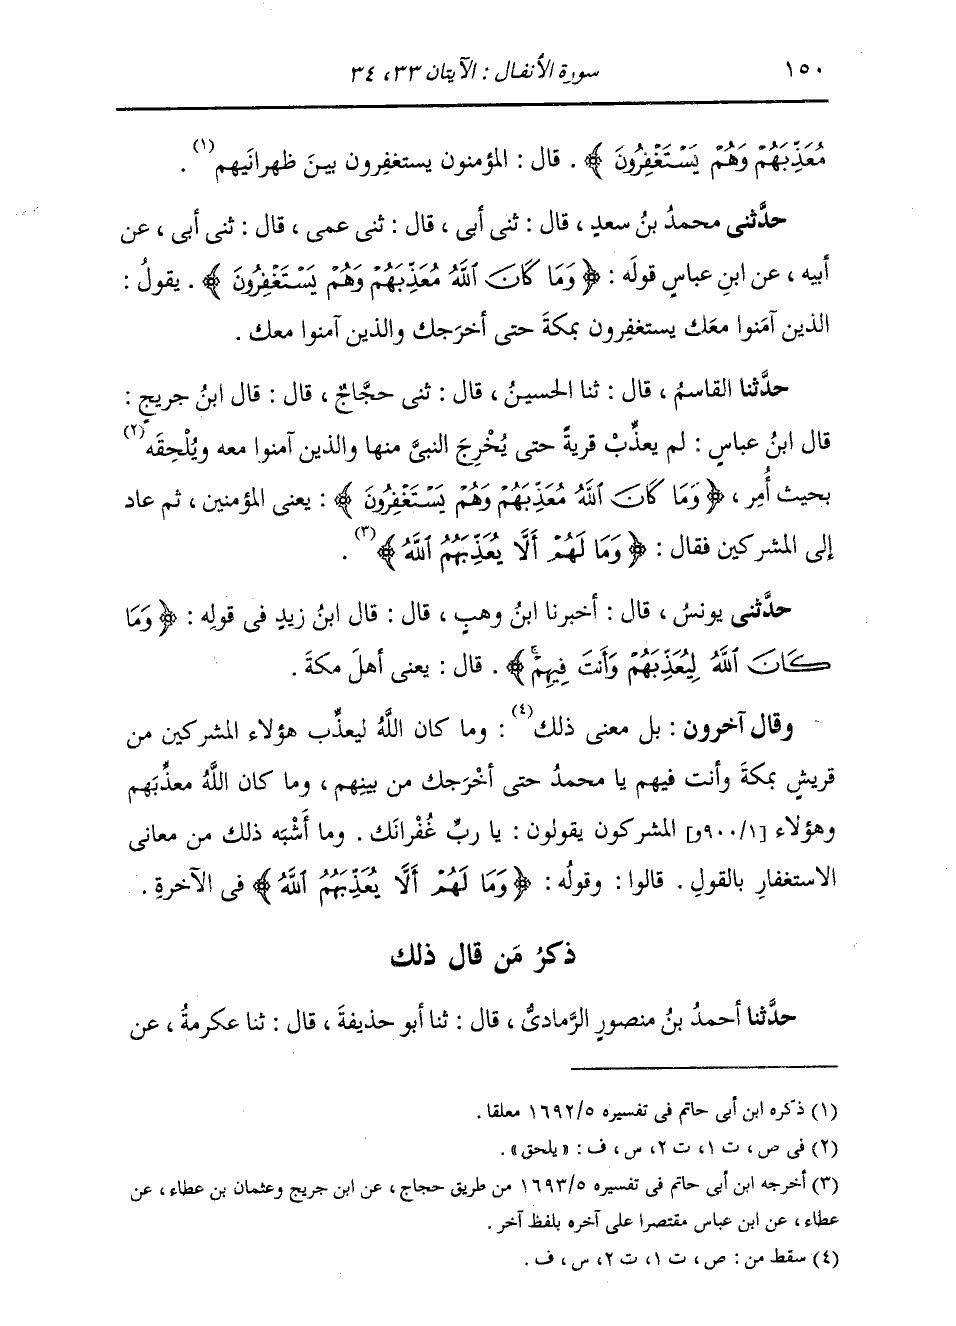 ١٥٠ سورة الأنفال : الآيتان ٣٣، ٣٤
مُعَذِّبَهُمْ وَهُمْ يَسْتَغْفِرُونَ ﴾ . قال : المؤمنون يستغفِرون بينَ ظهرانَيهم(١) .
حدَّثنى محمدُ بنُ سعدٍ ، قال : ثنى أبى ، قال : ثنى عمى ، قال : ثنى أبى ، عن
أبيه ، عن ابنِ عباسٍ قولَه : ﴿ وَمَا كَانَ اللَّهُ مُعَذِّبَهُمْ وَهُمْ يَسْتَغْفِرُونَ ﴾ . يقولُ :
الذين آمَنوا معَك يستغفِرون بمكةَ حتى أخرَجك والذين آمنوا معك .
حدَّثنا القاسمُ ، قال : ثنا الحسينُ ، قال : ثنى حجَّاجٌ ، قال : قال ابنُ جريجٍ :
قال ابنُ عباسٍ : لم يعذِّبْ قريةً حتى يُخْرِجَ النبىَّ منها والذين آمنوا معه ويُلْحِقَه(٢)
بحيث أُمِر ، ﴿ وَمَا كَانَ اللَّهُ مُعَذِّبَهُمْ وَهُمْ يَسْتَغْفِرُونَ ﴾ : يعنى المؤمنين ، ثم عاد
إلى المشركين فقال : ﴿ وَمَا لَهُمْ أَلَّا يُعَذِّبَهُمُ اللَّهُ ﴾(٣) .
حدَّثنى يونسُ ، قال : أخبرنا ابنُ وهبٍ ، قال : قال ابنُ زيدٍ فى قولِه : ﴿ وَمَا
كَانَ اللَّهُ لِيُعَذِّبَهُمْ وَأَنتَ فِيهِمْ ﴾ . قال : يعنى أهلَ مكةَ .
وقال آخرون : بل معنى ذلك(٤) : وما كان اللَّهُ ليعذِّب هؤلاء المشركين من
قريشٍ بمكةَ وأنت فيهم يا محمدُ حتى أخْرَجك من بينِهم ، وما كان اللَّهُ معذِّبَهم
وهؤلاء [٩٠٠/١و] المشركون يقولون : يا ربِّ غُفْرانَك . وما أَشْبَه ذلك من معانى
الاستغفارِ بالقولِ . قالوا : وقولُه : ﴿ وَمَا لَهُمْ أَلَّا يُعَذِّبَهُمُ اللَّهُ ﴾ فى الآخرةِ .
ذكرُ مَن قال ذلك
حدَّثنا أحمدُ بنُ منصورٍ الرَّمادىُّ ، قال : ثنا أبو حذيفةَ ، قال : ثنا عكرمةُ ، عن
(١) ذكره ابن أبى حاتم فى تفسيره ١٦٩٢/٥ معلقا .
(٢) فى ص ، ت ١، ت ٢، س ، ف : «يلحق» .
(٣) أخرجه ابن أبى حاتم فى تفسيره ١٦٩٣/٥ من طريق حجاج ، عن ابن جريج وعثمان بن عطاء ، عن
عطاء ، عن ابن عباس مقتصرا على آخره بلفظ آخر .
(٤) سقط من : ص ، ت ١، ت ٢، س ، ف .